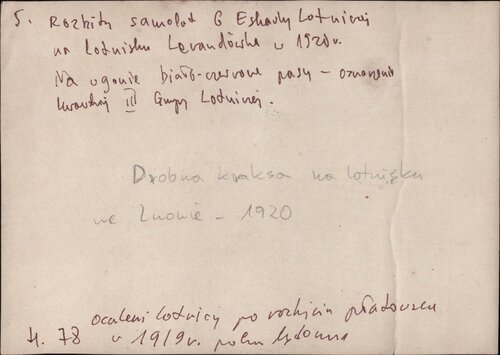 5. Rozbity samolot 6 Eskadry Lotniczej
na lotnisku Lewandówka w 1920 r.
Na ogonie biało-czerwone pasy - oznaczenie
lwowskiej III Grupy Lotniczej.
Drobna kraksa na lotnisku
we Lwowie - 1920
Ocaleni lotnicy po rozbiciu płatowca
4. 78 w 1919 r. połm